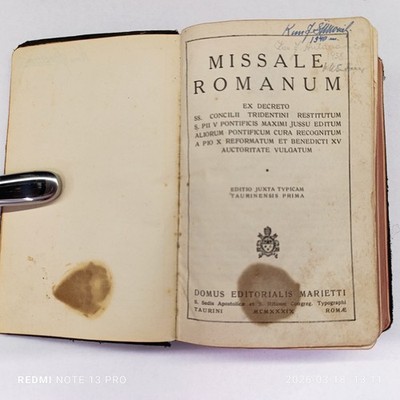 MISSALE
ROMANUM
EX DECRETO
SS. CONCILII TRIDENTINI RESTITUTUM
S. PII V PONTIFICIS MAXIMI JUSSU EDITUM
ALIORUM PONTIFICUM CURA RECOGNITUM
A PIO X REFORMATUM ET BENEDICTI XV
AUCTORITATE VULGATUM
EDITIO JUXTA TYPICAM
TAURINENSIS PRIMA
DOMUS EDITORIALIS MARIETTI
S. Sedis Apostolicæ et S. Rituum Congreg. Typographi
TAURINI MCMXXXIX ROMÆ
REDMI NOTE 13 PRO